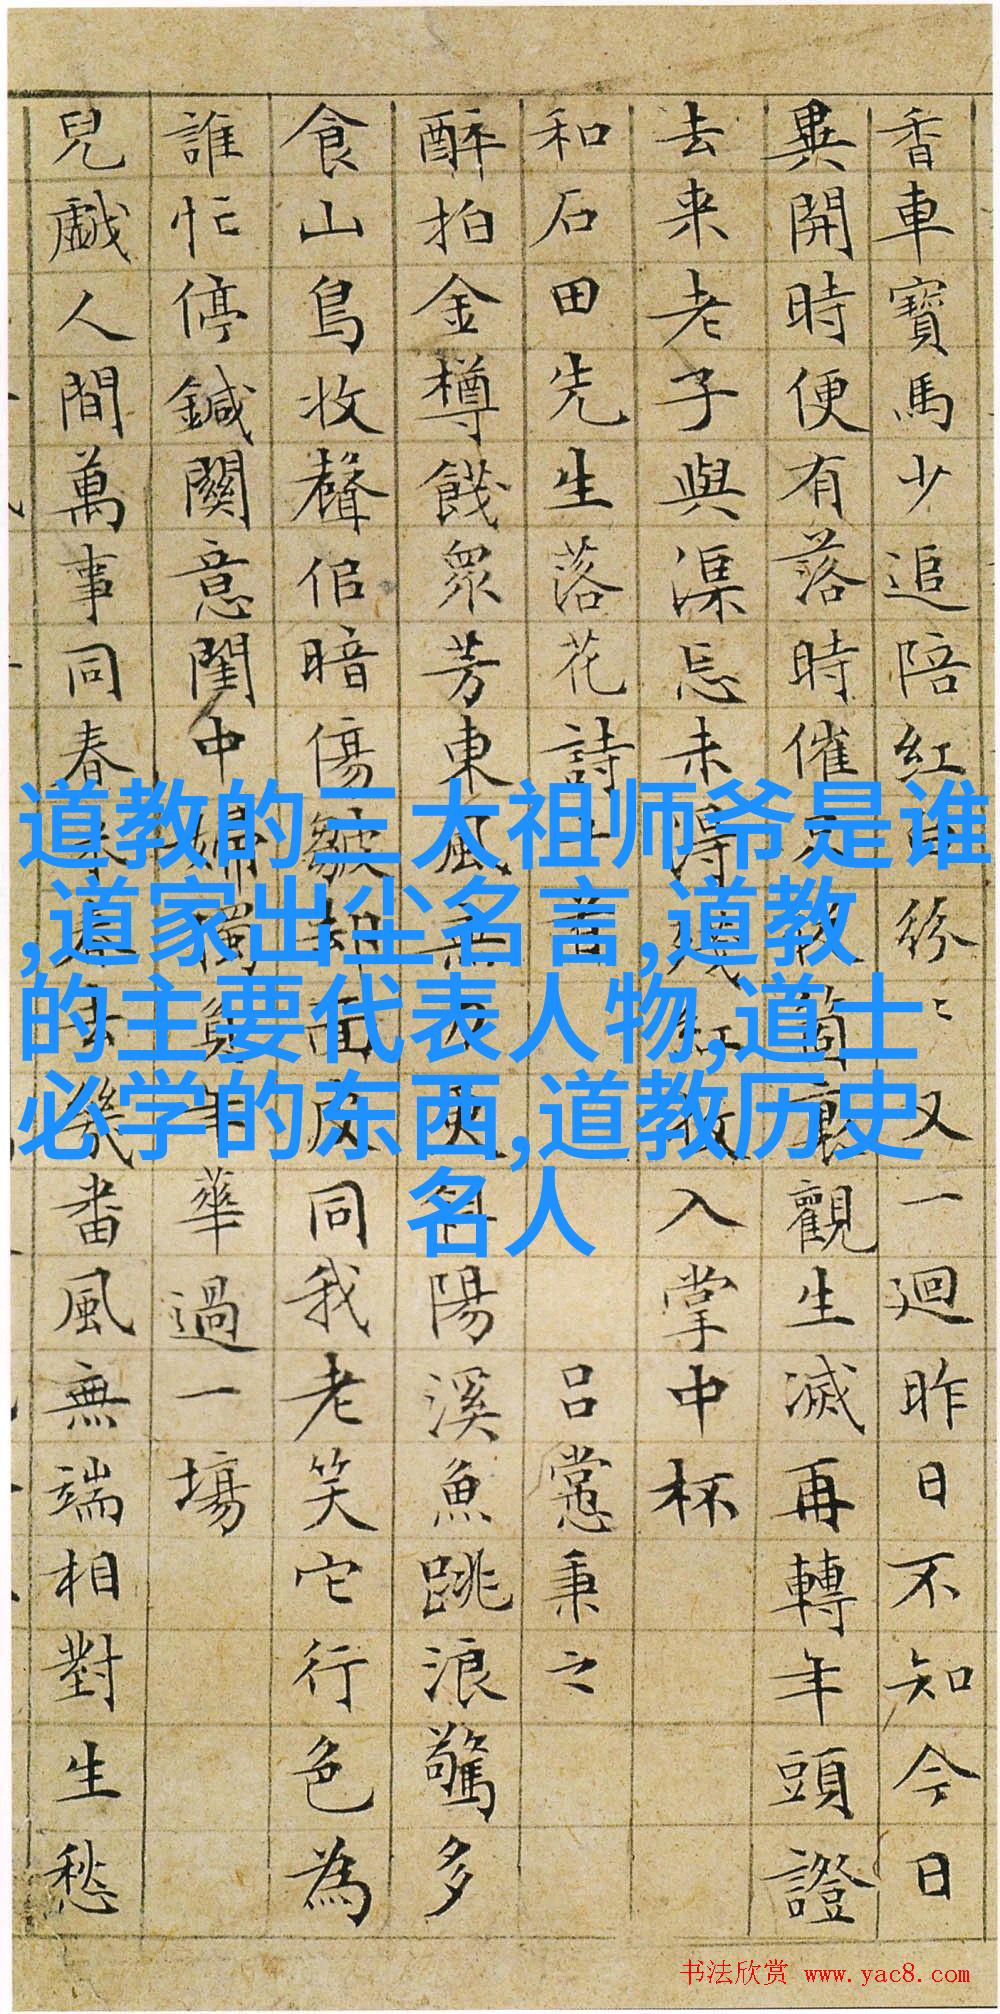 香車寶馬少追陪紅紛〻又一迴昨日不知今日
異開時便有落時催箇裏觀生滅再轉年頭證
去来老子與渠忘未得殘紅收入掌中杯
和石田先生落花詩十首 呂㦂秉之
醉拍金樽餞眾芳東風無力更斜陽溪魚跳浪驚多
食山鳥收聲倍暗傷皺却面皮同我老笑它行色為
誰忙停鍼關意閨中婦獨年華過一場
兒戲人間萬事同春來春去幾番風無端相對生愁
道教的三大祖师爷是谁
,道家出尘名言,道教
的主要代表人物,道士
必学的东西,道教历史
名人
书法欣赏 www.yac8.com